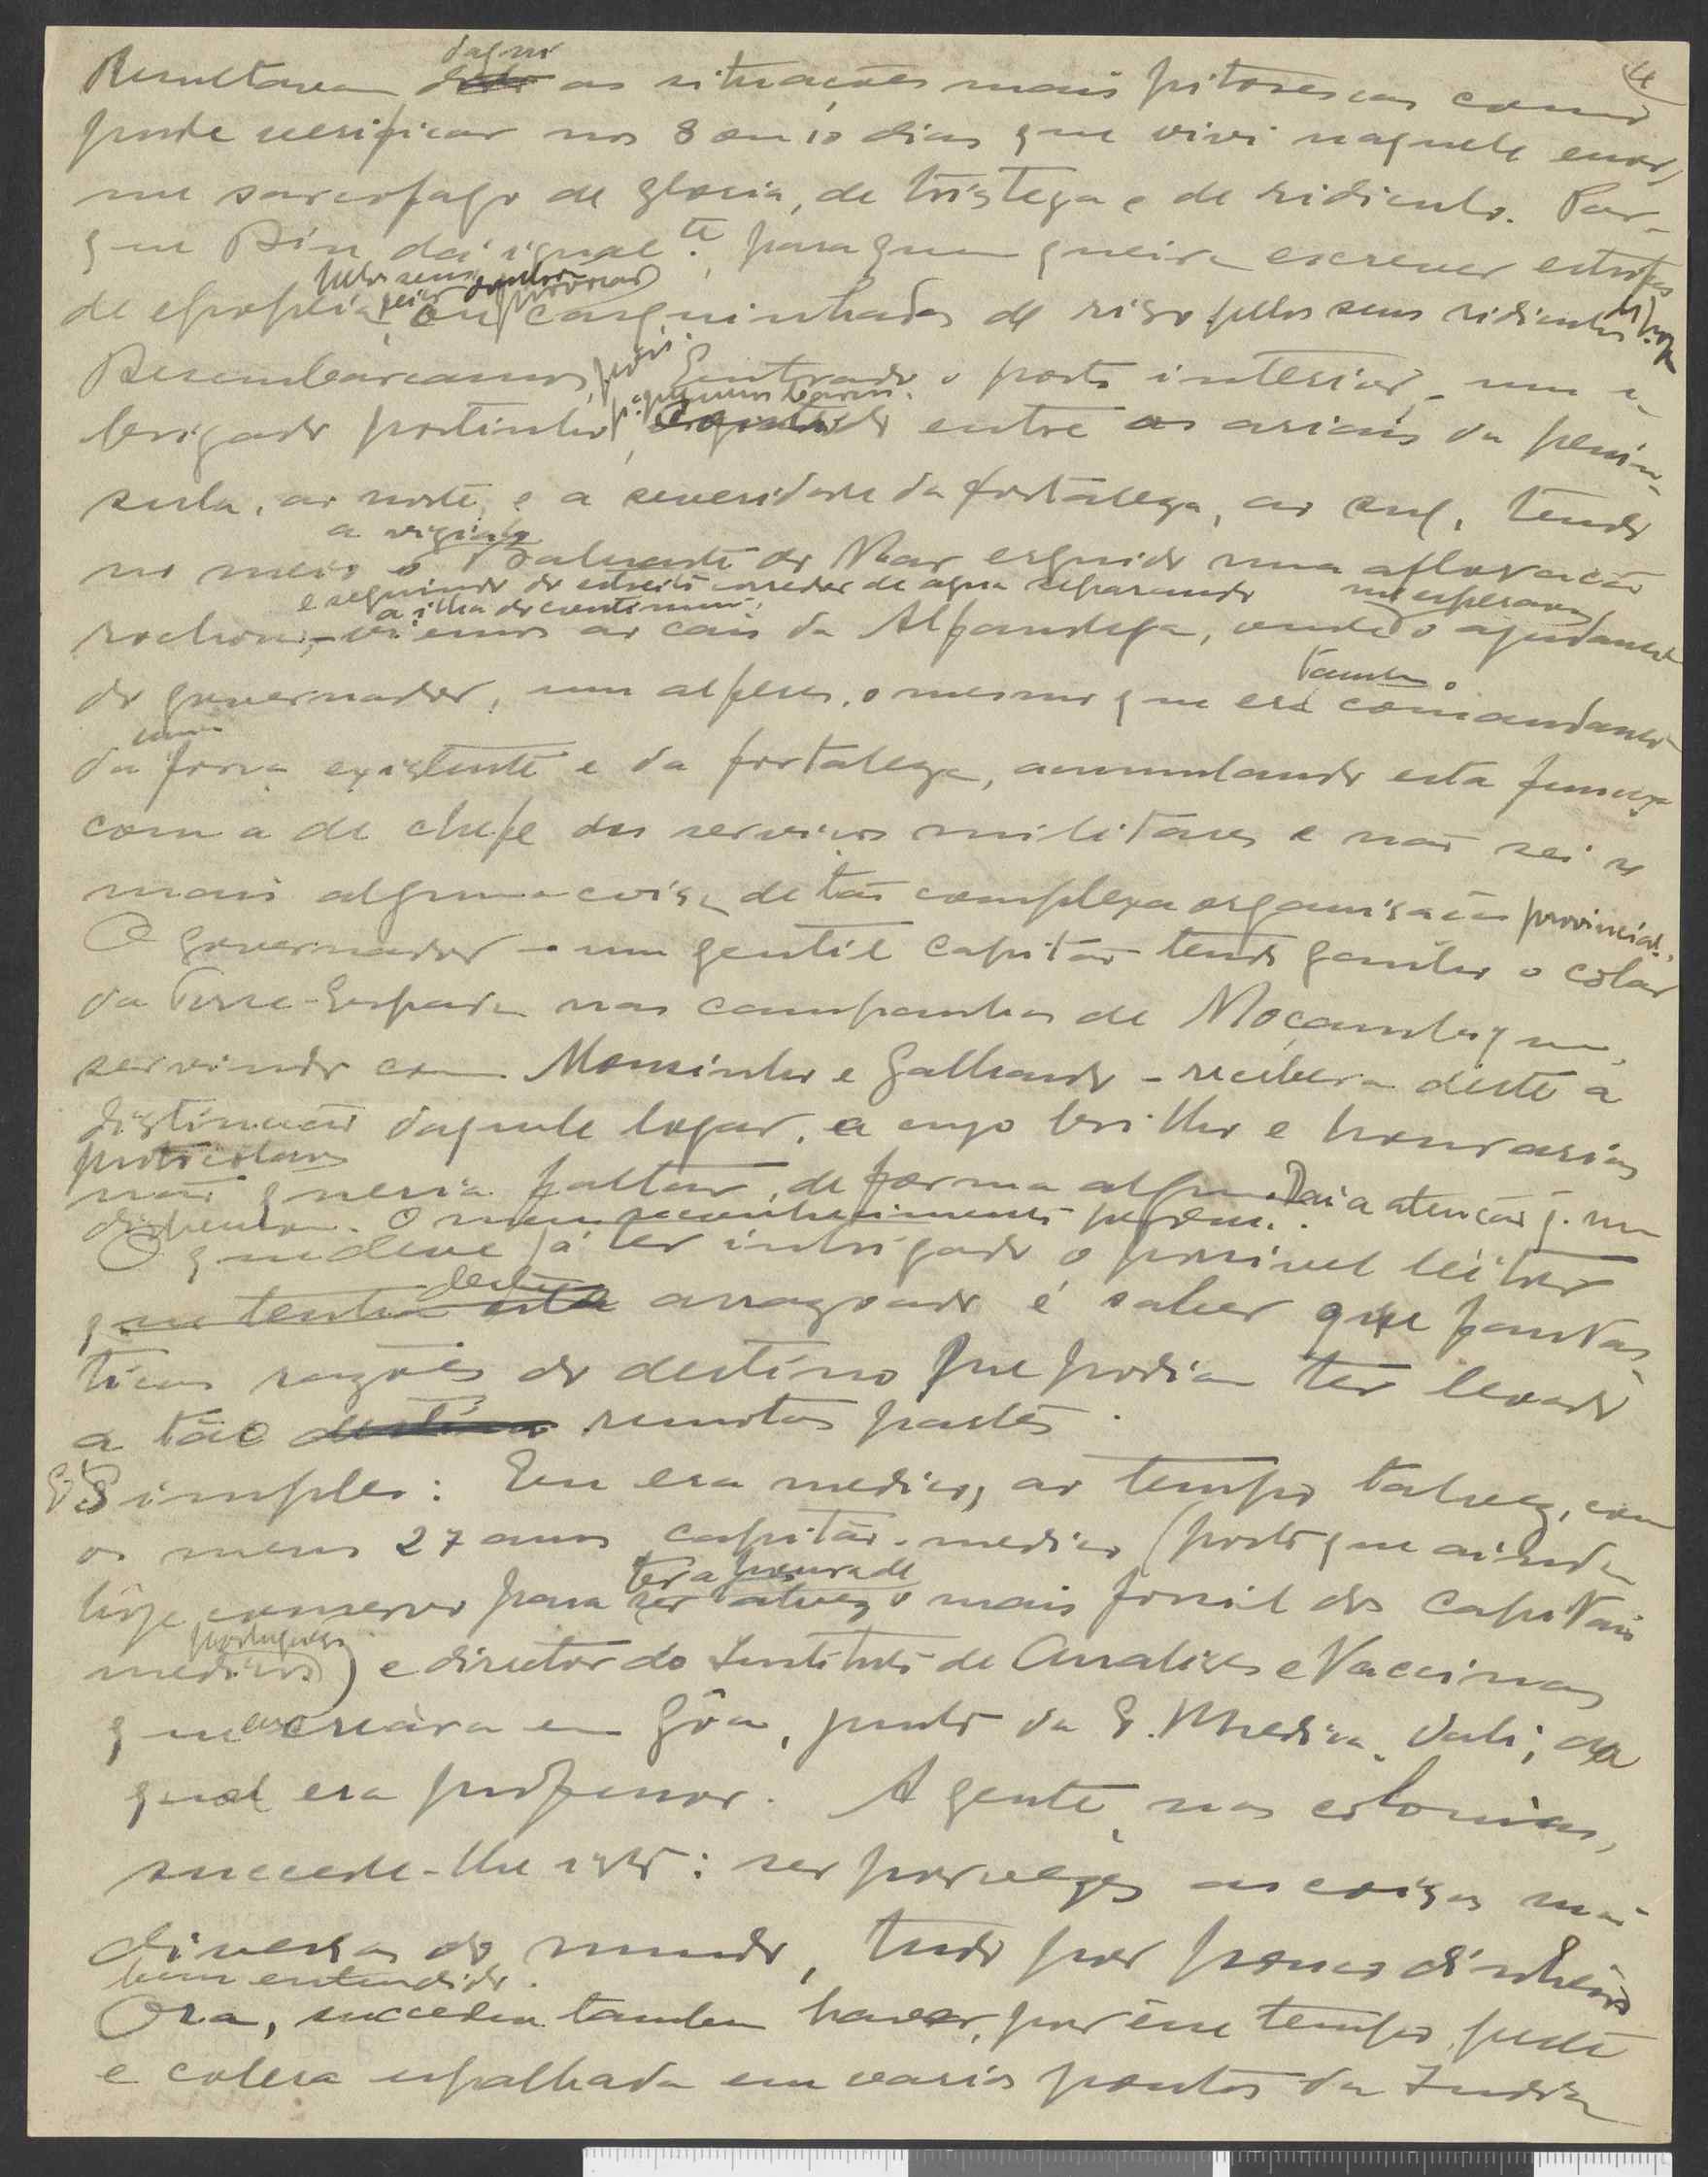 4
daqui
Resultavam as situações mais pitorescas como
pude verificar nos 8 ou 10 dias que vivi naquele enor-
me sarcofago de gloria, de tristeza e de ridiculo. Por-
que Diu dá igual.te, para quem queira escrever estrofes
pelo seu
de epopeia, ou casquinhadas de riso pelos seus ridiculos
Desembarcamos, pois. Entrado o porto interior, um a-
p.ª pequenos barcos.
brigado portinho, entre os areais da penin-
sula, ao norte, e a severidade da fortaleza, ao sul, tendo
a vigial-o
no meio o Baluarte do Mar erguido numa afloração
e seguindo do estreito corredor de agua separando
a ilha do continente, me esperava
rochosa, viemos ao cais da Alfandega, onde o ajudante
tambem
do governador, um alferes, o mesmo que era comandante
da força existente e da fortaleza, acumulando esta função
com a de chefe dos serviços militares e não sei se
mais alguma coisa de tão complexa organisação provincial.
O governador - um gentil capitão tendo ganho o colar
da Torre-Espada nas campanhas de Moçambique,
servindo com Mousinho e Galhardo - recebera deste a
distincção daquele logar, a cujo brilho e honrarias
protocolares
não queria faltar, de forma alguma. Daí a atenção q. me
dispensou. O meu reconhecimento
O que deve já ter intrigado o possivel leitor
deste
que tenha esta arrazoado é saber que fantas-
ticas razões do destino me podiam ter levado
a tão remotas partes.
É Simples: Eu era medico, ao tempo talvez, com
os meus 27 anos, capitão-medico (posto que ainda
ter a honra de
hoje conservo para ser talvez o mais fossil dos capitães
portugueses
medicos) e director do Instituto de Analises e Vaccinas
que eu creára em Gôa, junto da E. Medica dali; da
qual era professor. A gente, nas colonias,
succede-lhe isto: ser por vezes as coisas mais
diversas do mundo, tudo por pouco dinheiro
bem entendido.
Ora, succedeu tambem haver, por êsse tempo, peste
e colera espalhada em varios pontos da India